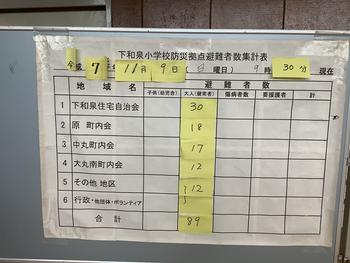 下和泉小学校防災拠点避難者数集計表
7年 11月 9日 (日 曜日) 9時 30分 現在
地域名 避難者数
子供(幼児含) 大人(健常者) 傷病者数 要援護者 計
1 下和泉住宅自治会 30
2 原 町内会 18
3 中丸町内会 17
4 大丸南町内会 12
5 その他 地区 12
6 行政・他団体・ボランティア
合計 89